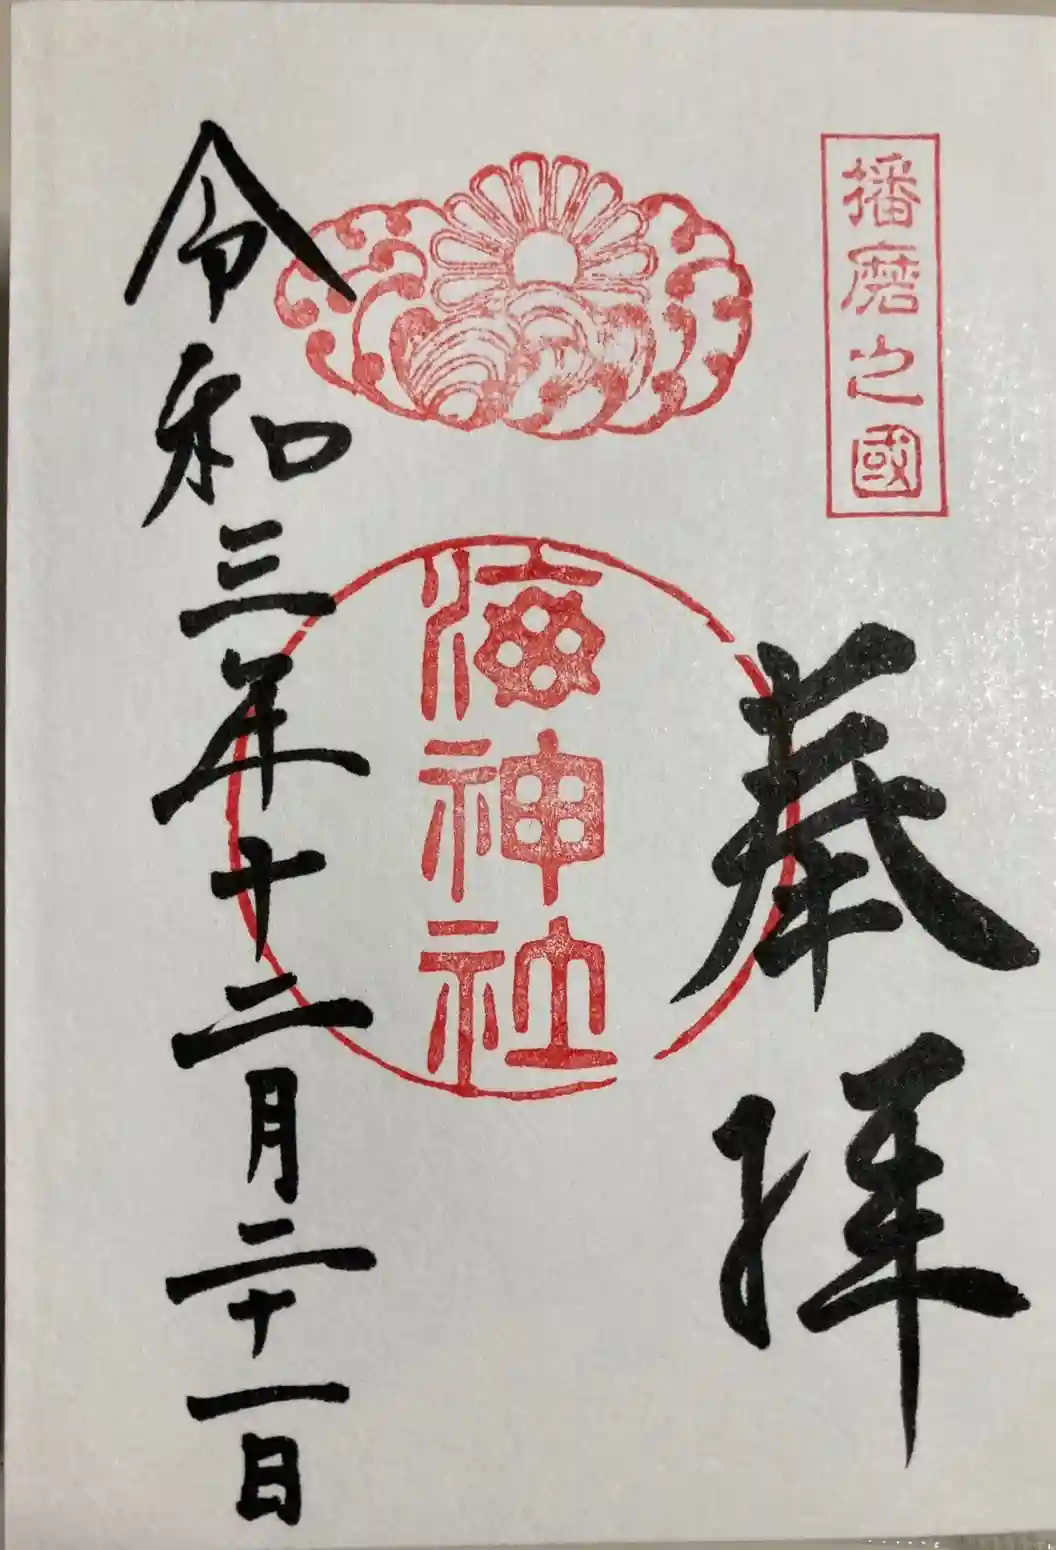 播磨之國
奉拝
海神社
令和三年十二月二十一日